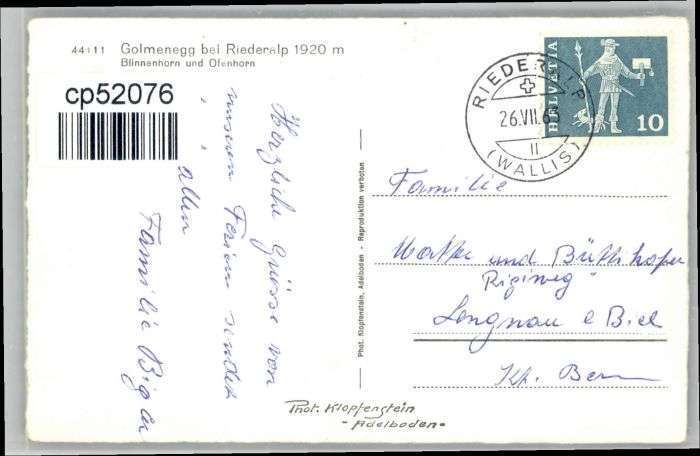 44111 Golmenegg bei Riederalp 1920 m
Blinnenhorn und Ofenhorn
cp52076
Herzliche Grüsse von
unseren Ferien sendet
allen
Familie
Phot. Klopfenstein, Adelboden - Reproduktion verboten
RIEDERALP
26.VII.6
II
(WALLIS)
HELVETIA
10
Familie
und
Lengnau b Biel
Kt. Bern
Phot. Klopfenstein
- Adelboden -